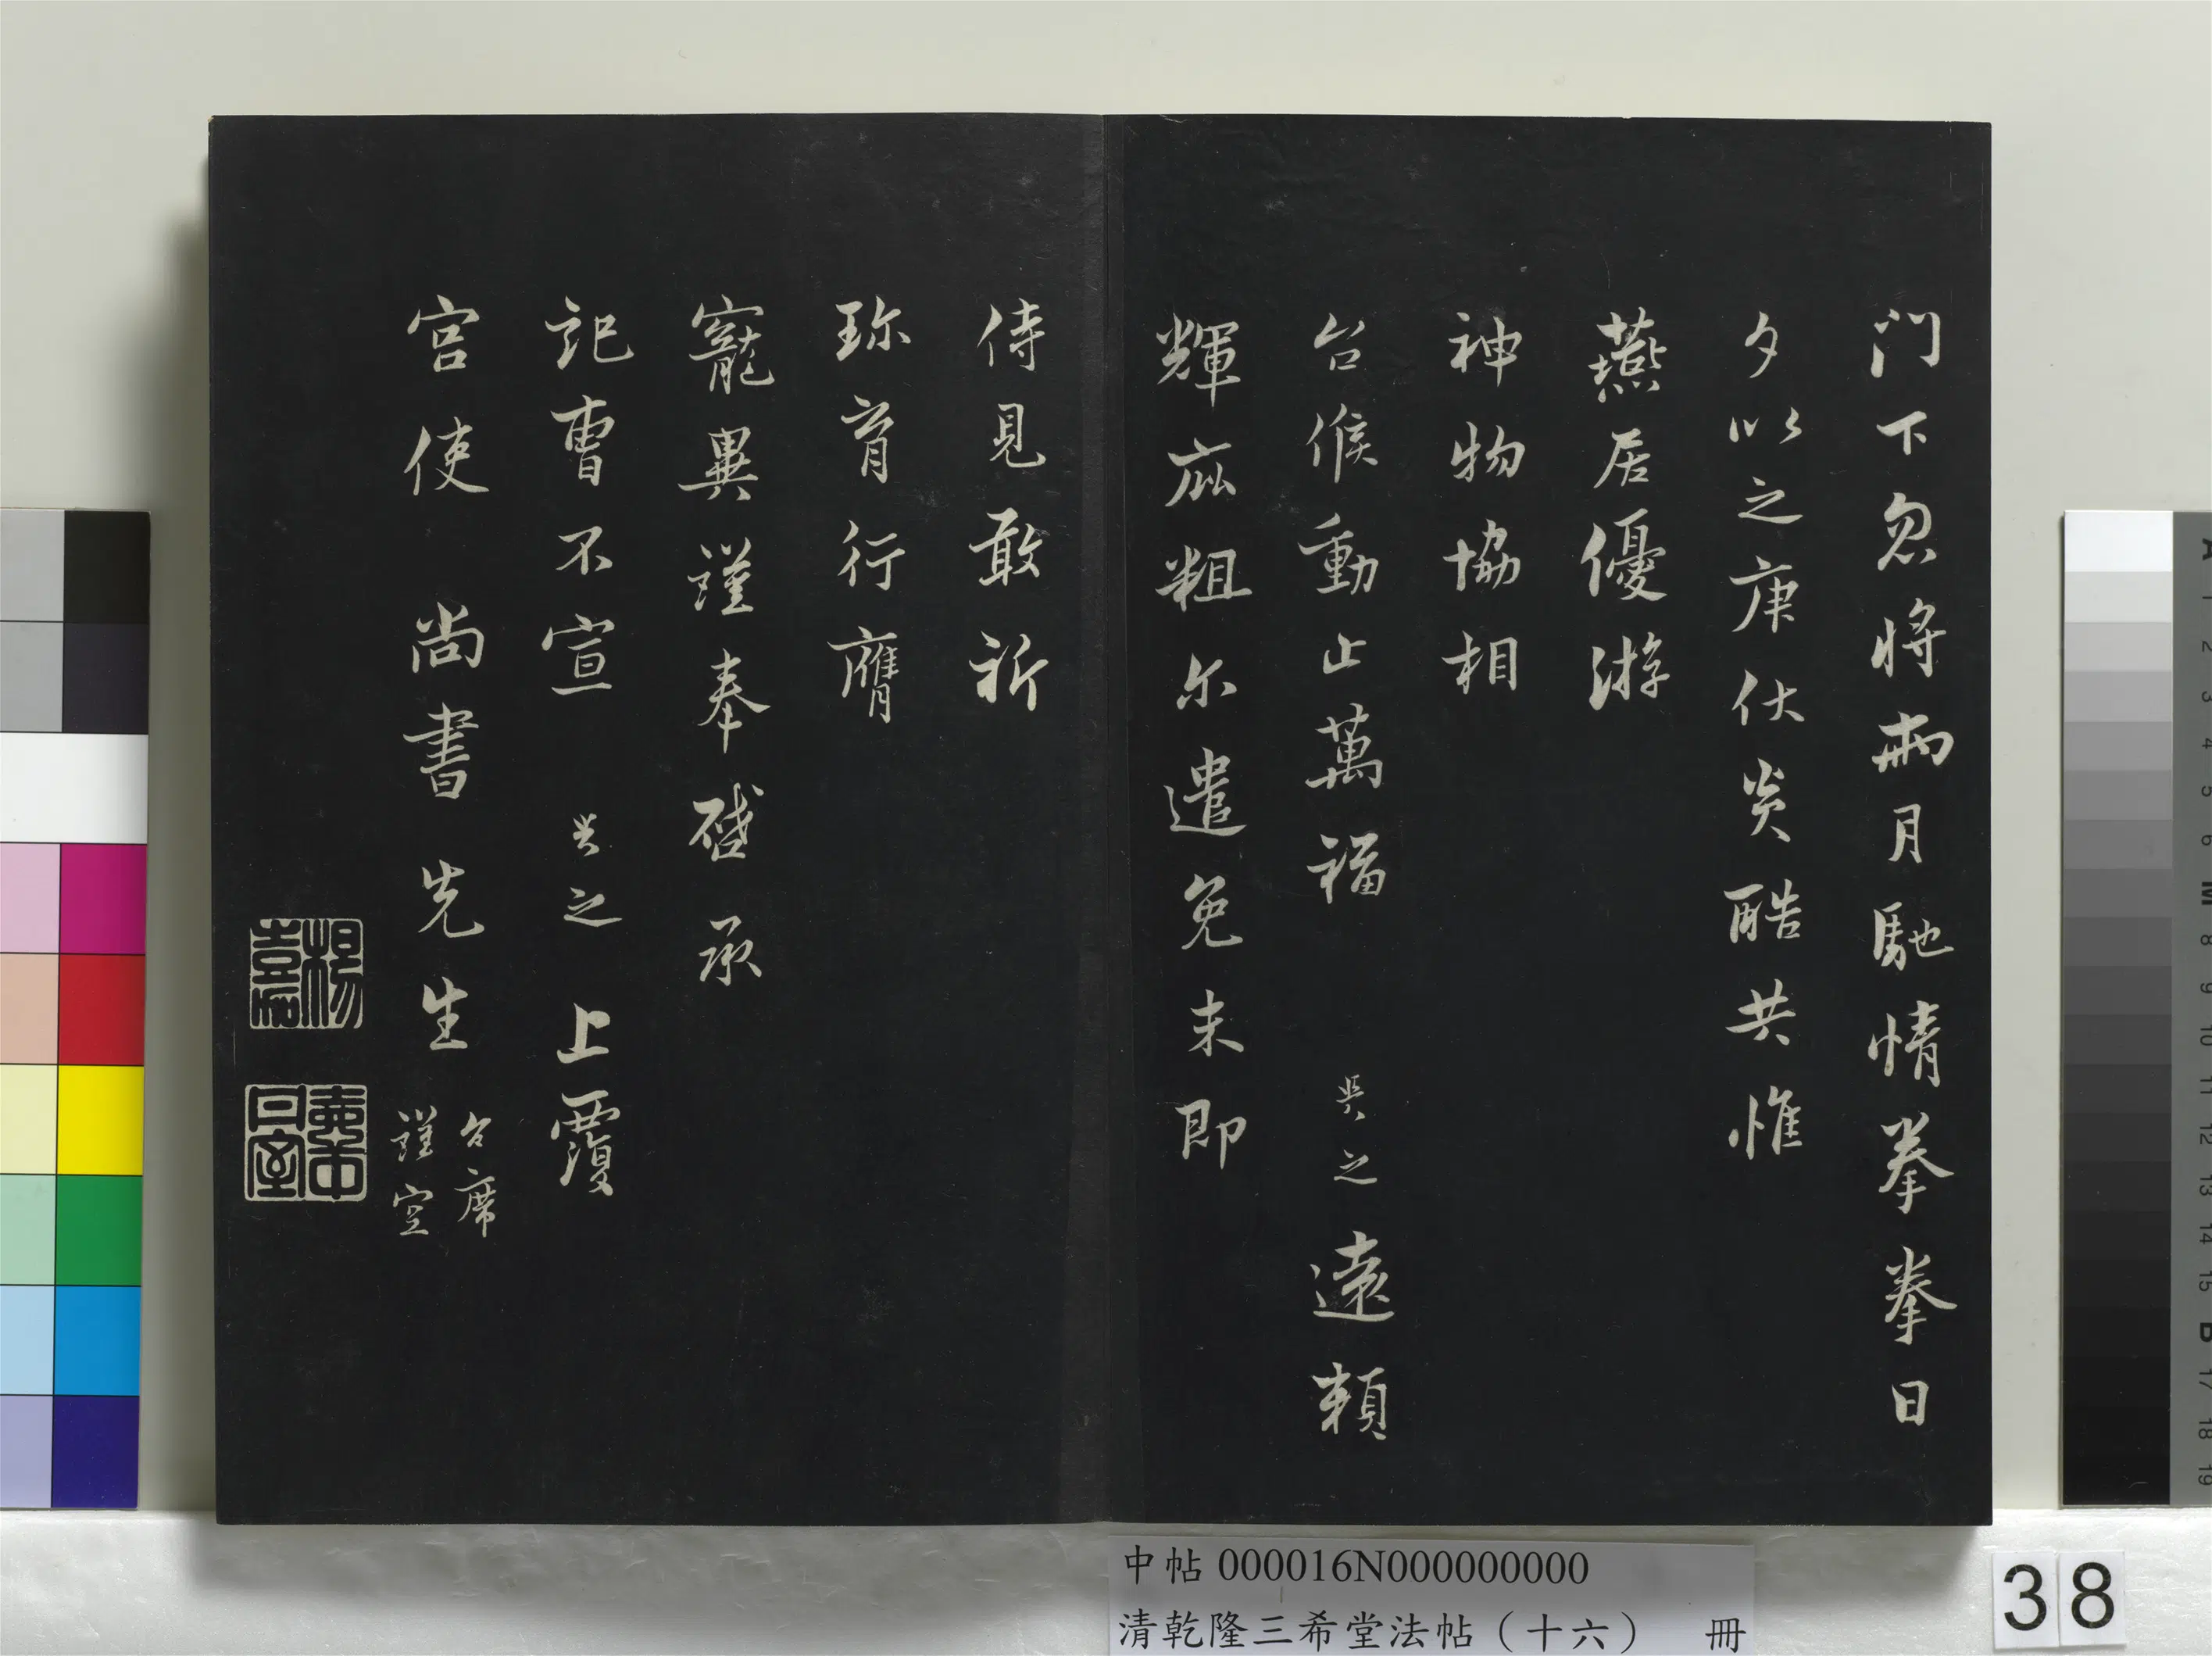 门下忽将兩月馳情拳拳日
夕以之庚伏炎酷共惟
燕居優游
神物協相
台候動止萬福 具之遠賴
輝庇粗尔遣免未即
侍見敢祈
珎育行膺
寵異謹奉啓承
記曹不宣 具之 上覆
宫使 尚書 先生
台席
謹空
楊嘉
中帖 000016N000000000
清乾隆三希堂法帖（十六） 冊
38
A 1 2 3 4 5 6 M 8 9 10 11 12 13 14 15 B 17 18 19